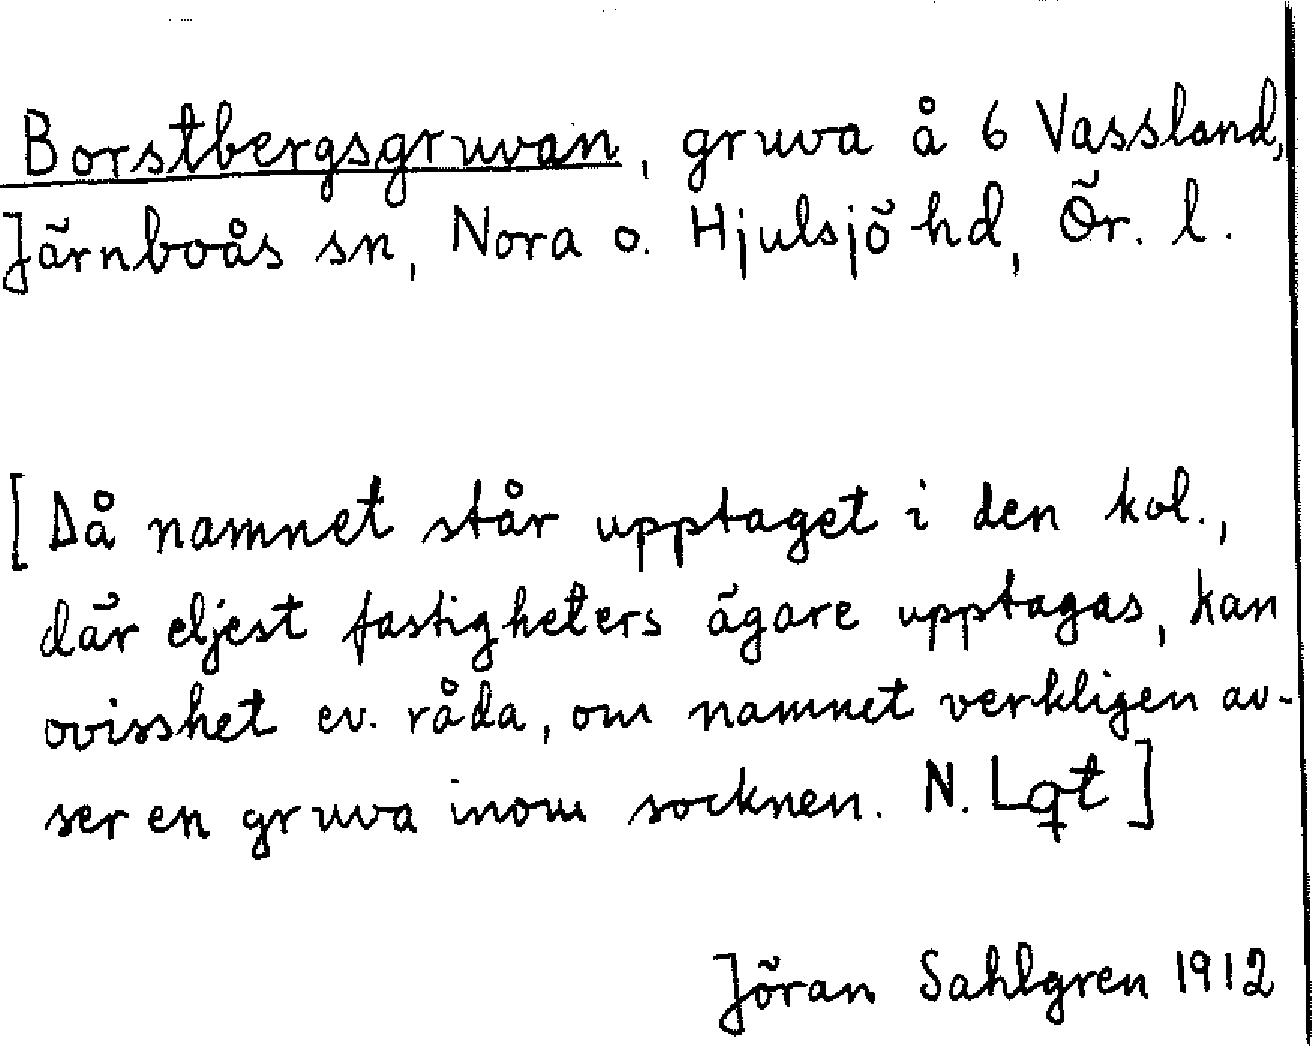 Borstbergsgruvan, gruva å 6 Vassland,
Järnboås sn, Nora o. Hjulsjö hd, Ör. l.
[Då namnet står upptaget i den kol.,
där eljest fastigheters ägare upptagas, kan
ovisshet ev. råda, om namnet verkligen av-
ser en gruva inom socknen. N. Lqt]
Jöran Sahlgren 1912